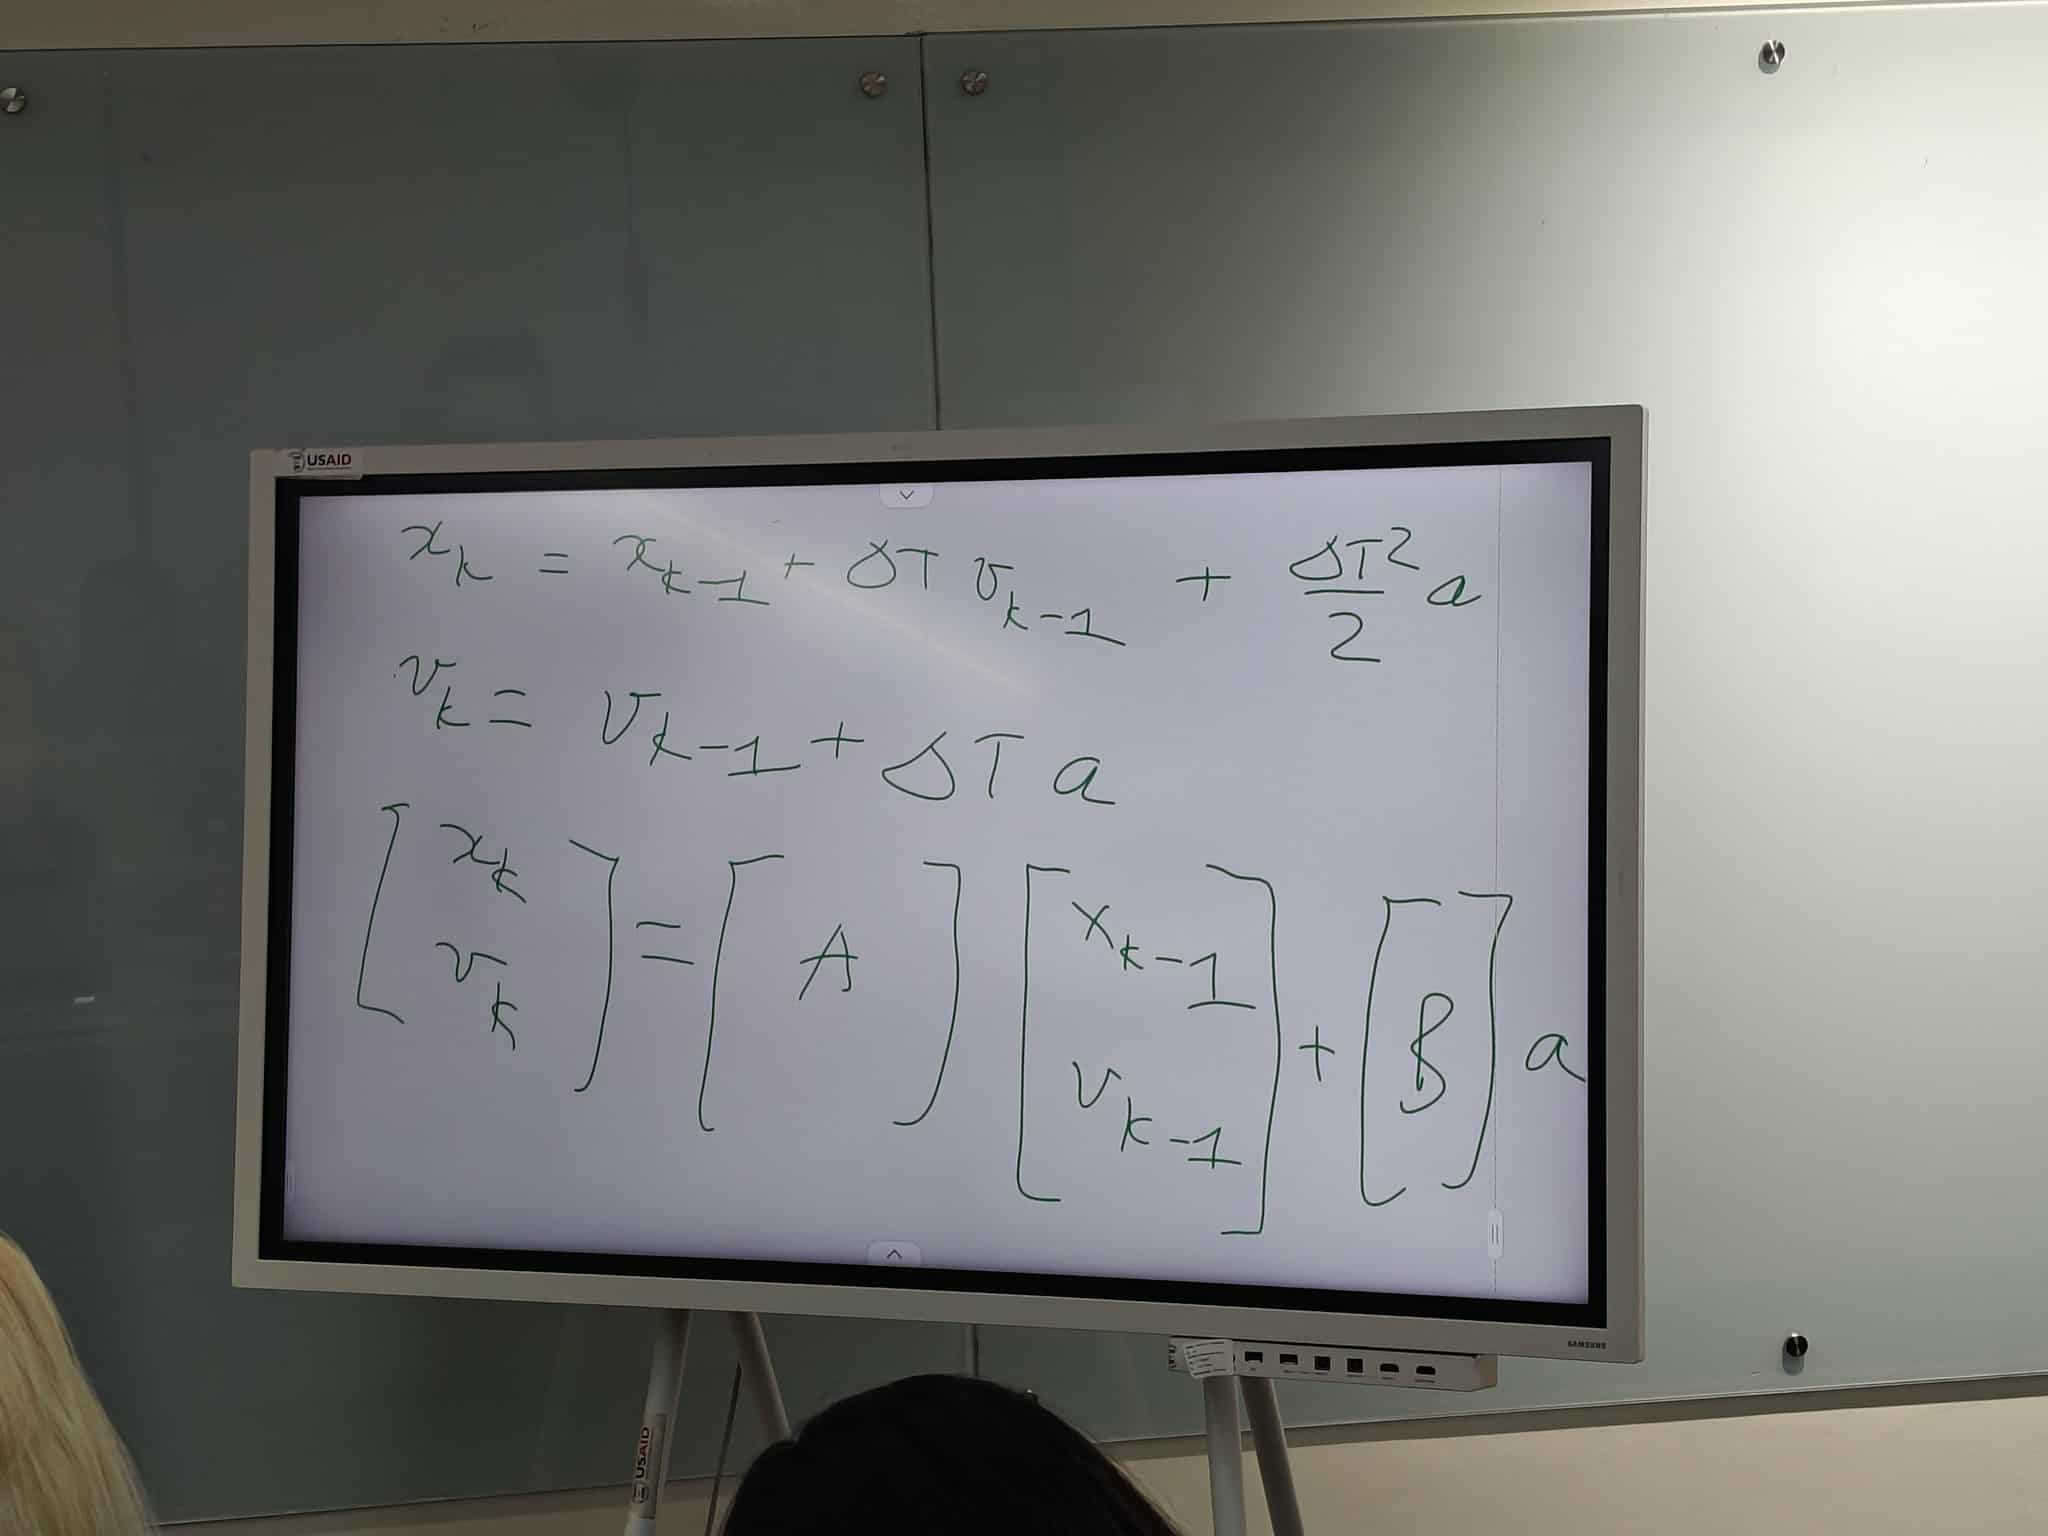 USAID
x_k = x_{k-1} + ΔT v_{k-1} + ΔT²/2 a
v_k = v_{k-1} + ΔT a
[x_k v_k] = [A] [x_{k-1} v_{k-1}] + [B] a
SAMSUNG
USAID